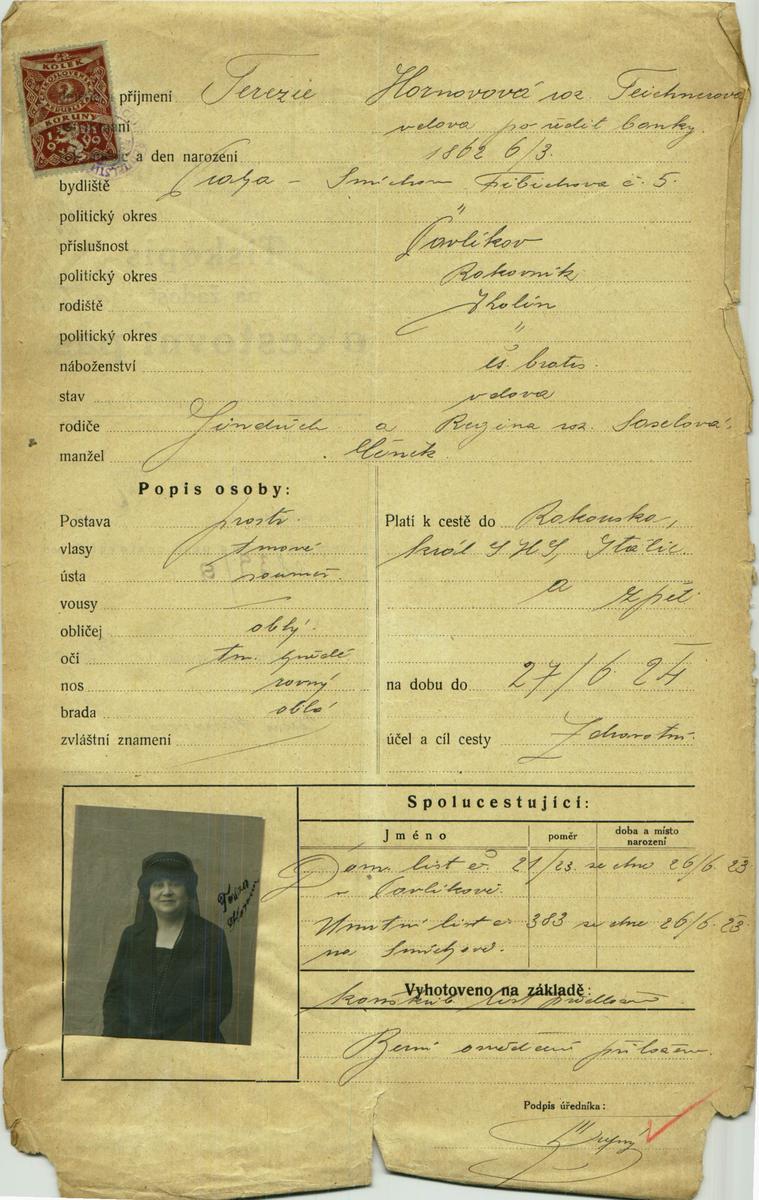 KOLEK
2
KORUNY
příjmení Terezie Hornovová roz. Teichnerova
vdova po řédit. banky.
a den narození 1862 6/3.
bydliště Praha – Smíchov Fibichova č. 5.
politický okres "
příslušnost Pavlíkov
politický okres Rakovník
rodiště Kolín
politický okres "
náboženství čs. bratr.
stav vdova
rodiče Jindřich a Regina roz.
manžel
Popis osoby:
Postava prostř.
vlasy tmavé
ústa souměr.
vousy —
obličej oblý.
oči tm. hnědé
nos rovný
brada oblá
zvláštní znamení
Platí k cestě do Rakouska,
král. S.H.S, Itálie
a zpět
na dobu do 27/6 24
účel a cíl cesty Zdravotní.
Spolucestující:
Jméno poměr doba a místo narození
Dom. list č. 21/23. ze dne 26/6 23
v Pavlíkově.
Úmrtní list č. 383 ze dne 26/6 23
na Smíchově.
Vyhotoveno na základě:
konskrib. list
Berní osvědčení přiloženo.
Podpis úředníka: